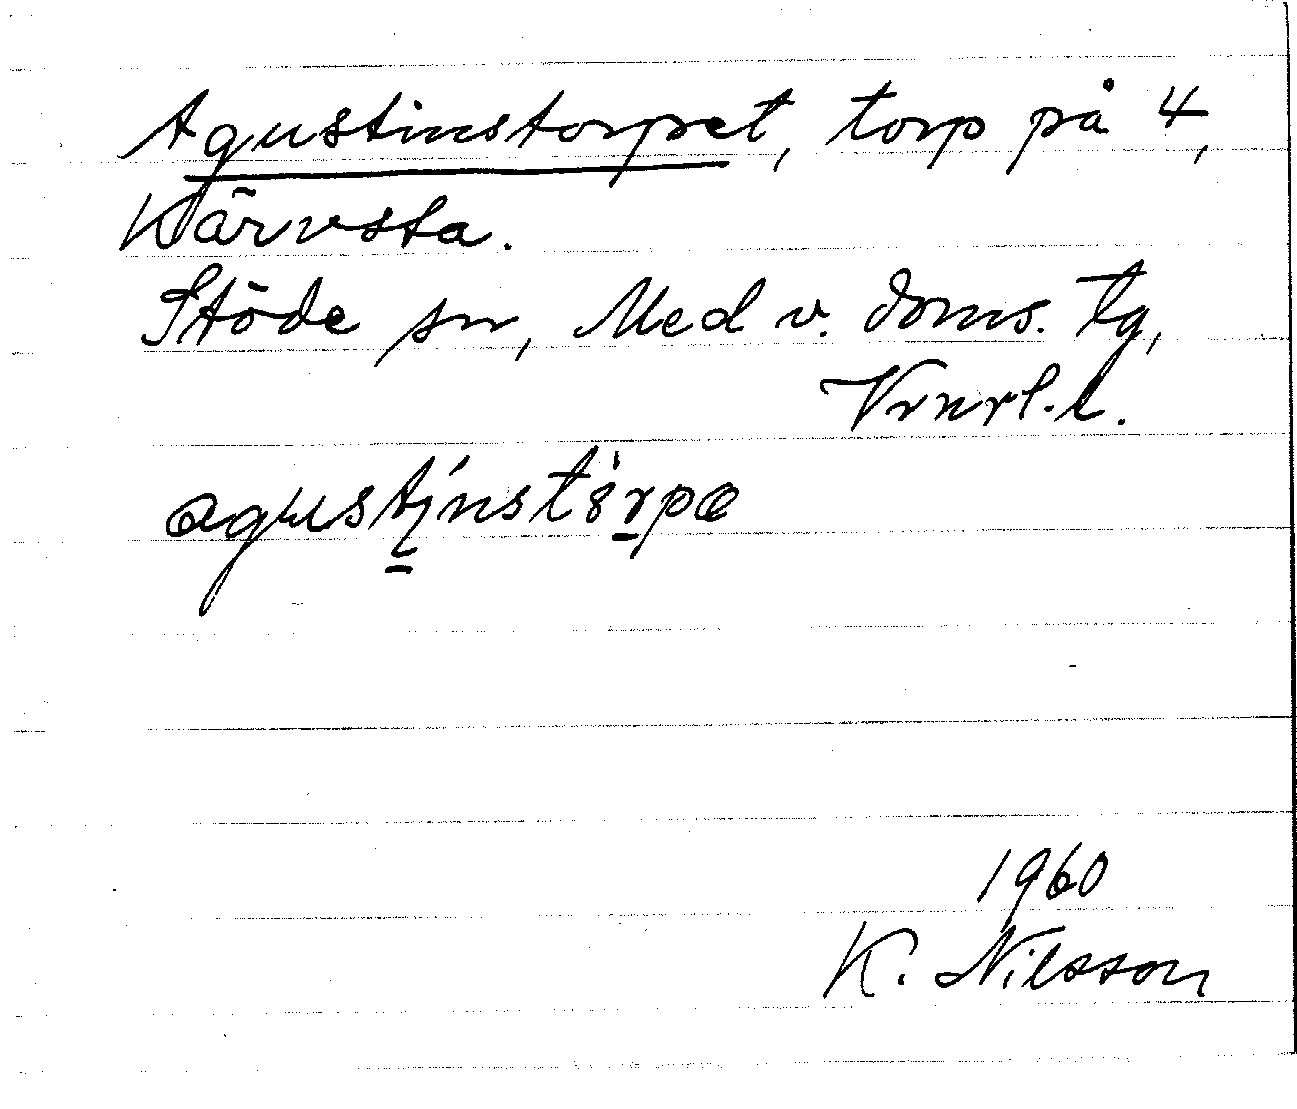 Agustinstorpet, torp på 4,
Kärvsta.
Stöde sn, Med v. doms. tg,
Vrnrl. l.
agustinstorpæ
1960
K. Nilsson